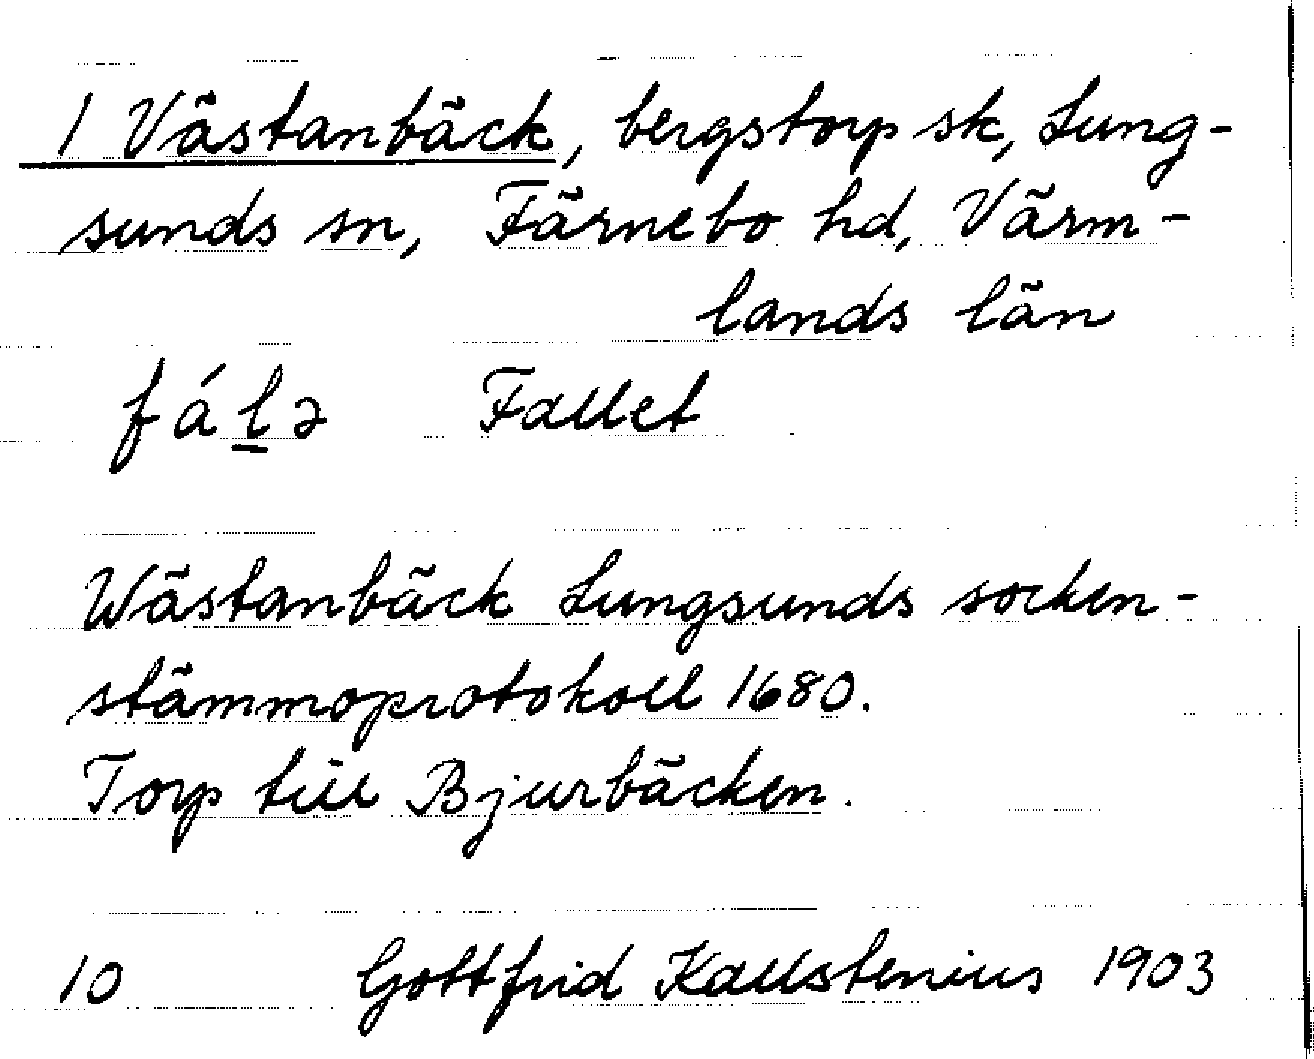 1 Västanbäck, bergstorp sk, Lung-
sunds sn, Färnebo hd, Värm-
lands län
fálə Fallet
Wästanbäck Lungsunds socken-
stämmoprotokoll 1680.
Torp till Bjurbäcken.
10 Gottfrid Kallstenius 1903